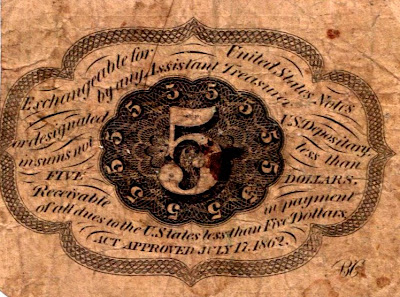 Exchangeable for United States Notes
by any Assistant Treasurer
or designated U.S. Depositary
in sums not less than
FIVE DOLLARS.
Receivable in payment
of all dues to the U. States less than Five Dollars.
ACT APPROVED JULY 17, 1862.
5
5
5
5
5
5
5
5
5
5
5